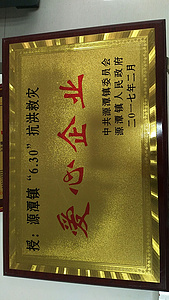 授：源潭镇“6.30”抗洪救灾
爱心企业
中共源潭镇委员会
源潭镇人民政府
二〇一七年二月